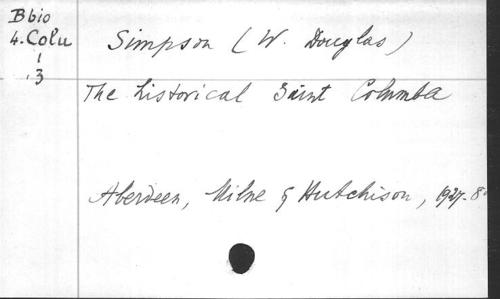 B bio
4. Colu
1
.3
Simpson (W. Douglas)
The historical Saint Columba
Aberdeen, Milne & Hutchison, 1927. 8º